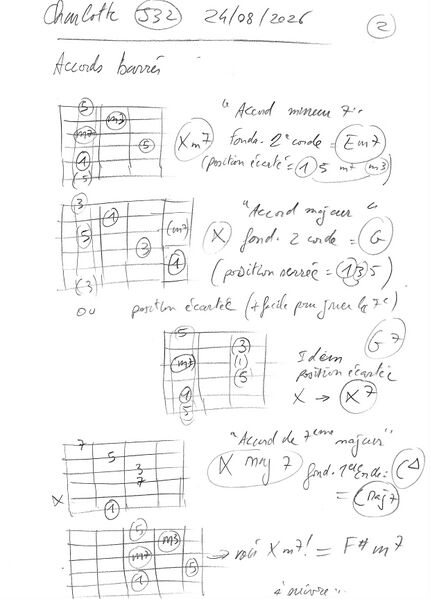 Charlotte S32 24/08/2026
2
Accords barrés
5
m3
m7
5
1
(5)
"Accord mineur 7"
Xm7 fond. 2e corde = Em7
(position écartée = 1 5 m7 m3)
3
1
5
(m7)
3
1
(3)
"Accord majeur"
X fond. 2 corde = G
(position serrée = 1 3 5)
ou position écartée (+ facile pour jouer la 7e)
5
3
m7
1
5
1
5
G7
Idem
position écartée
X → X7
7
5
3
7
X
1
"Accord de 7ème majeur"
X maj 7 fond. 1e corde: C∆
= Cmaj7
5
m3
m7
5
1
→ voir Xm7! = F#m7
à suivre...